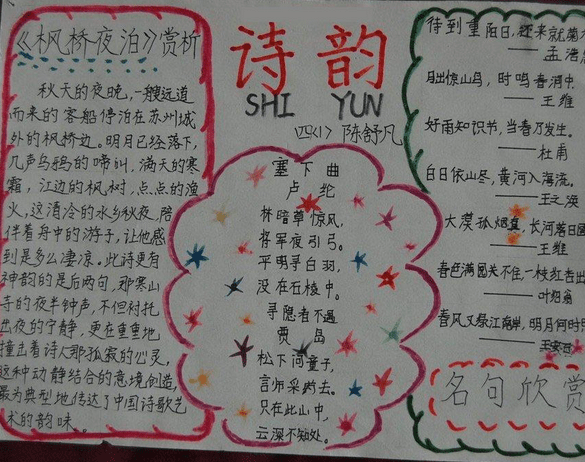 《枫桥夜泊》赏析
秋天的夜晚,一艘远道
而来的客船停泊在苏州城
外的枫桥边。明月已经落下,
几声乌鸦的啼叫,满天的寒
霜,江边的枫树,点点的渔
火,这清冷的水乡秋夜,陪
伴着舟中的游子,让他感
到是多么凄凉。此诗更有
神韵的是后两句,那寒山
寺的夜半钟声,不但衬托
出夜的宁静,更在重重地
撞击着诗人那孤寂的心灵,
这种动静结合的意境创造,
最为典型地传达了中国诗歌艺
术的韵味。
诗韵
SHI YUN
四(1) 陈舒凡
塞下曲
卢纶
林暗草惊风,
将军夜引弓。
平明寻白羽,
没在石棱中。
寻隐者不遇
贾岛
松下问童子,
言师采药去。
只在此山中,
云深不知处。
待到重阳日,还来就菊
——孟浩
月出惊山鸟,时鸣春涧中。
——王维
好雨知识节,当春乃发生。
——杜甫
白日依山尽,黄河入海流。
——王之涣
大漠孤烟直,长河落日圆
——王维
春色满园关不住,一枝红杏出
——叶绍翁
春风又绿江南岸,明月何时
——王安石
名句欣赏